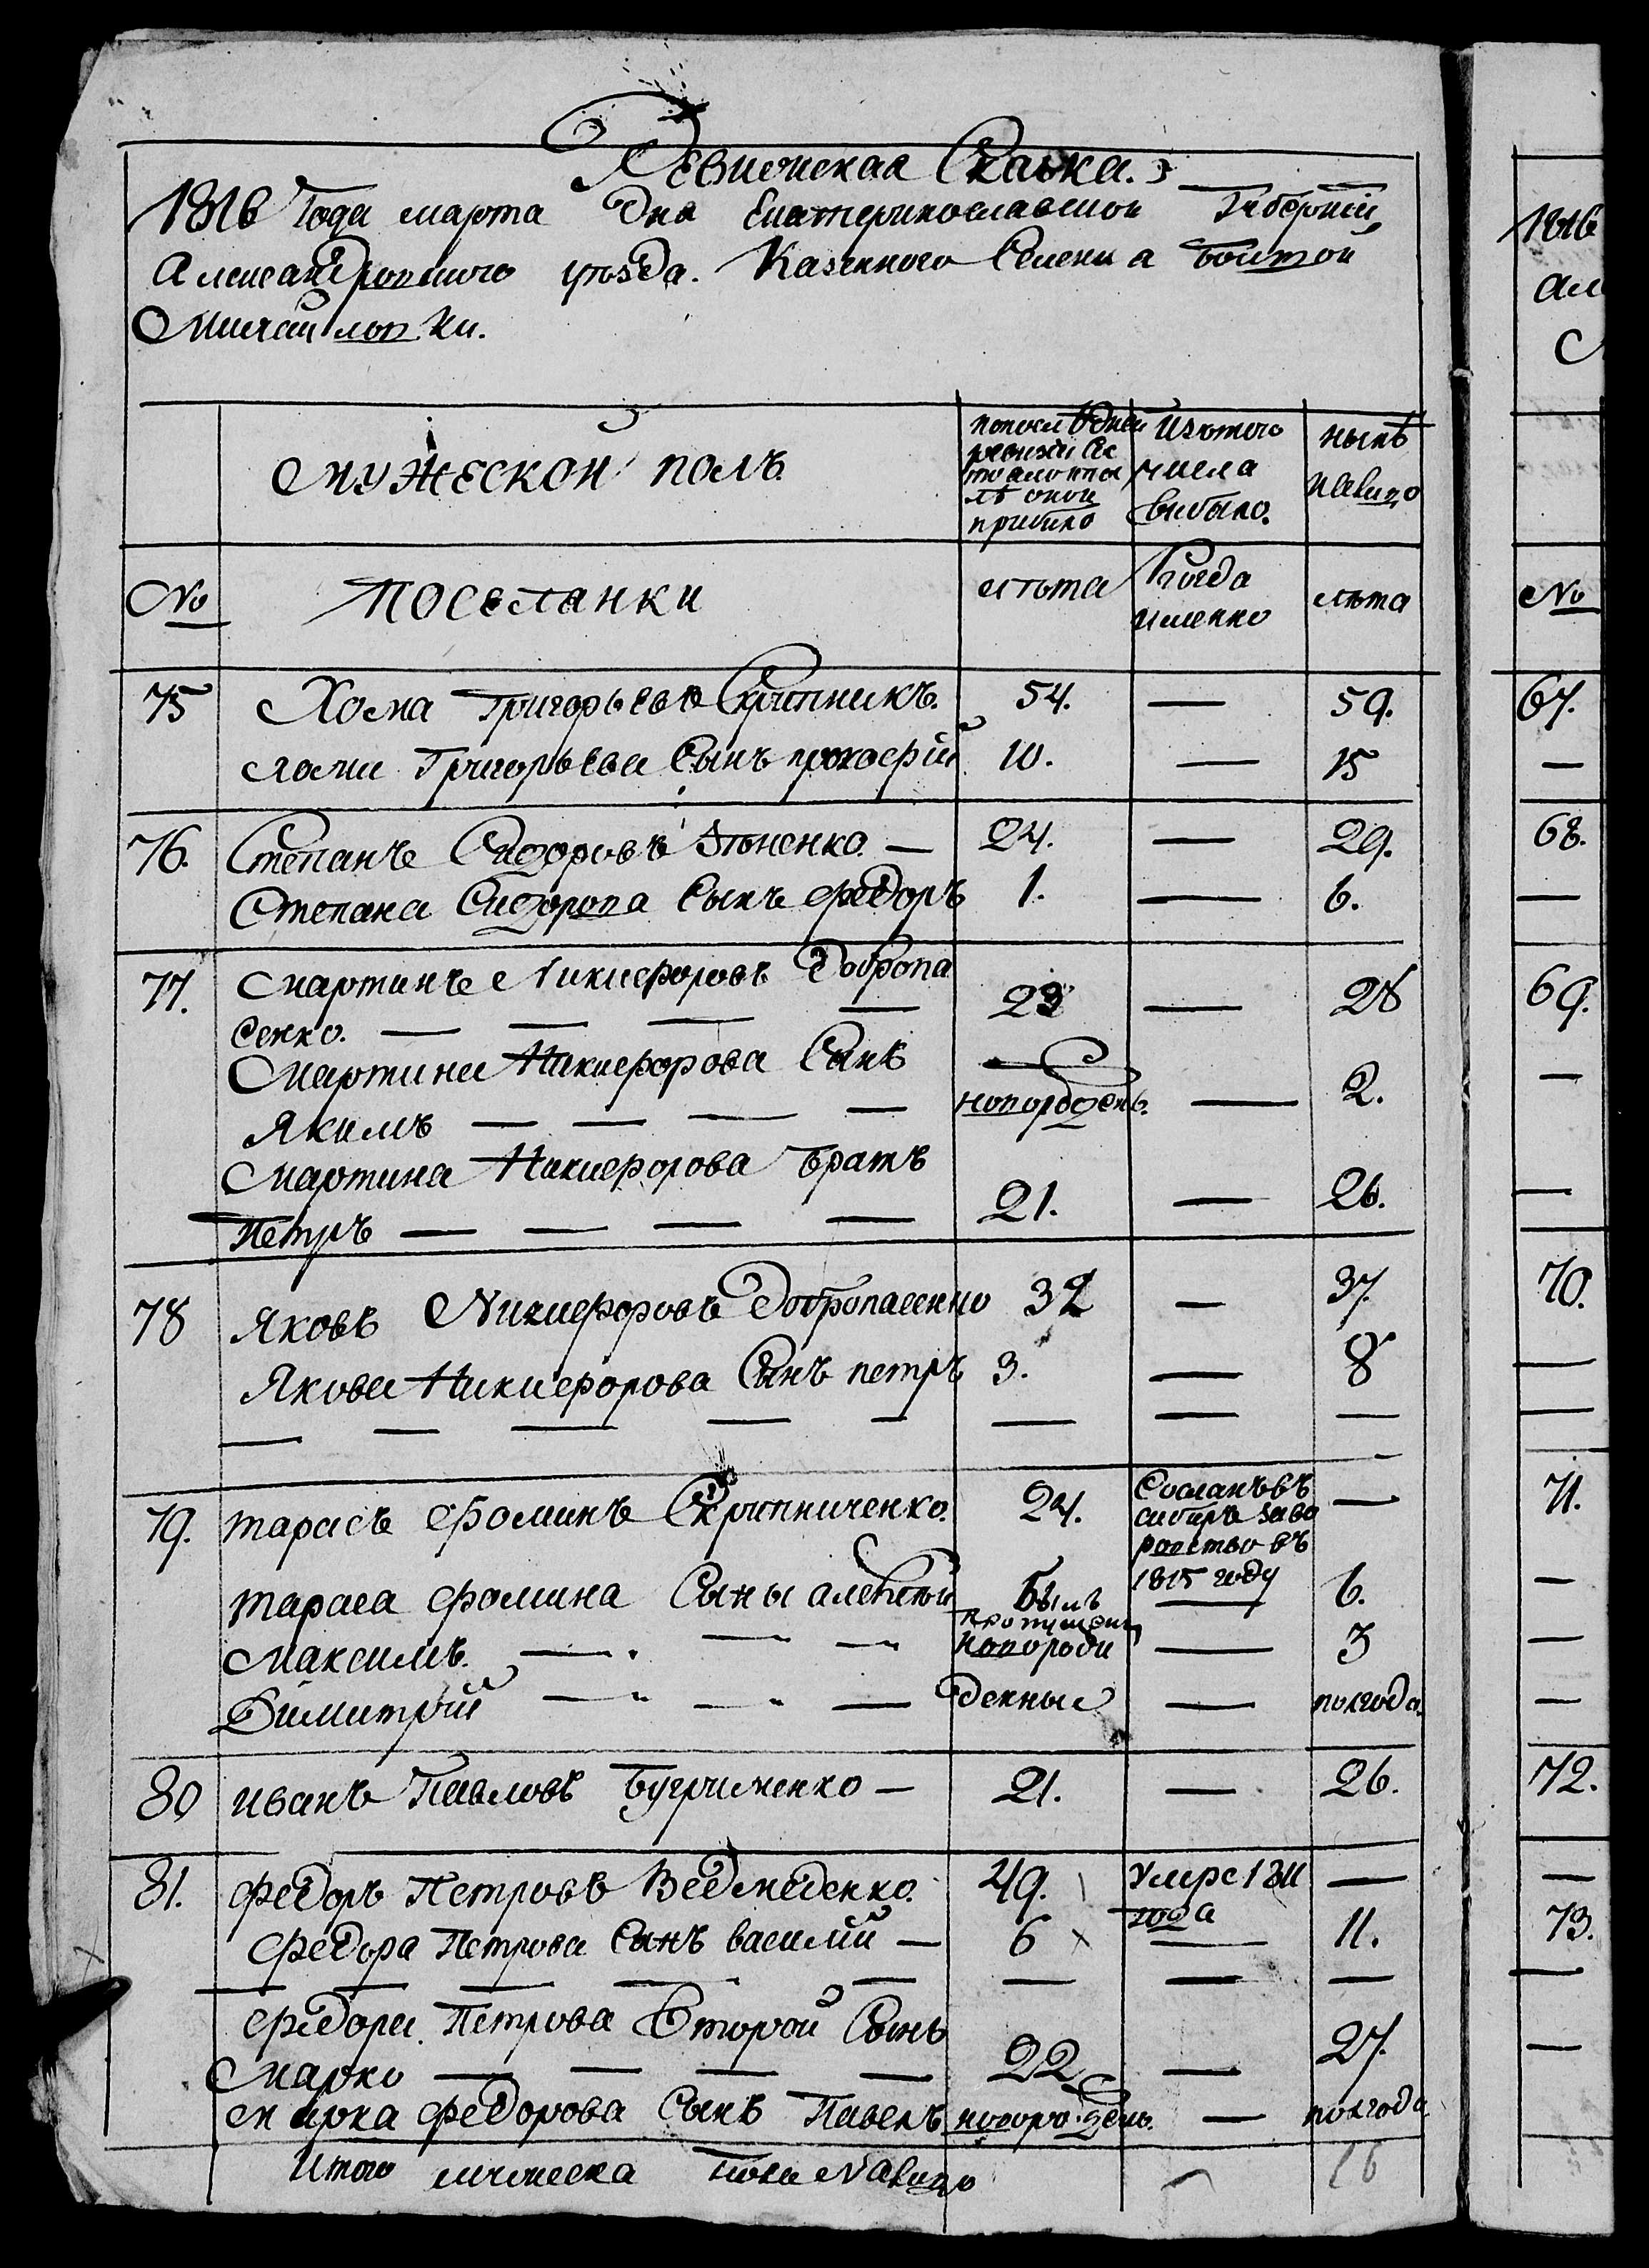 Ревижская Скаска.
1816 Года марта Дня Екатеринославской Губерніи,
Александровского уѣзда. Казенного Селения Большой
Михайловки.
Мужеской полъ.
попослѣдней ревизіи Состояло ипослѣ оной прибыло
Изътого числа выбыло.
нынѣ налицо
№
Поселянки
лѣта
Когда именно
лѣта
75 Хома Григорьевъ Скрипникъ. 54. — 59.
Григорьева Сынъ прокофій 10. — 15
76. Степанъ Сидоровъ — 24. — 29.
Степана Сидорова Сынъ федоръ 1. — 6.
77. Мартинъ Никифоровъ Добропа
сенко. — — — — 23 — 28
Мартина Никифорова Сынъ
Якимъ — — — — новорожденъ. — 2.
Мартина Никифорова Братъ
Петръ — — — — 21. — 26.
78 Яковъ Никифоровъ Добропасенко 32 — 37.
Якова Никифорова Сынъ петръ 3. — 8
— — — — — — — —
79. тарасъ Фоминъ Скрипниченко. 24. Сосланъ въ сибирь заво ровство въ 1815 году —
тараса фомина Сыны алексѣй былъ пропущенъ — 6.
Максимъ. — — — новорож — 3
Димитрій — — — денные — полгода.
80 иванъ Павловъ Бугрименко — 21. — 26.
81. федоръ Петровъ Ведмеденко. 49. Умре 1811 года —
федора Петрова Сынъ василій — 6 — 11.
— — — — — — — —
федора Петрова Второй Сынъ
Марко — — — — 22 — 27.
марка федорова Сынъ Павелъ новорожденъ. — полгода
Итого мужеска пола Налицо 16
1816
Але
М
№
67.
—
68.
—
69.
—
—
70.
—
—
71.
—
—
—
72.
—
73.
—
—